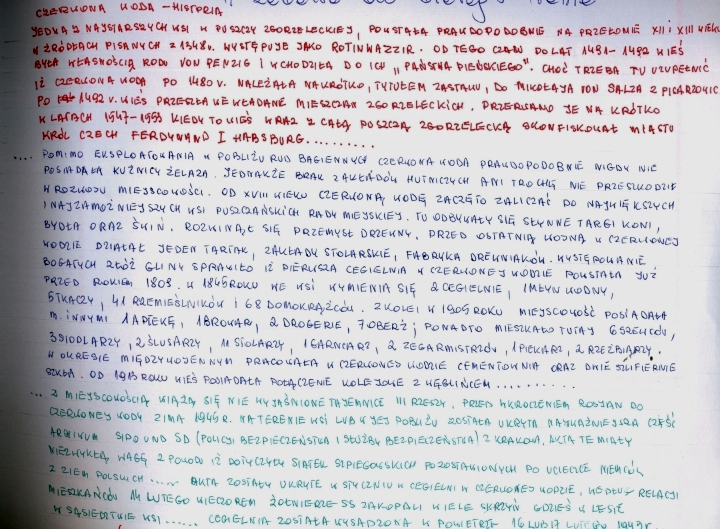 CZERWONA WODA – HISTORIA
JEDNA Z NAJSTARSZYCH WSI W PUSZCZY ZGORZELECKIEJ, POWSTAŁA PRAWDOPODOBNIE NA PRZEŁOMIE XII i XIII WIEKU
W ŹRÓDŁACH PISANYCH Z 1348r. WYSTĘPUJE JAKO ROTINWAZZIR. OD TEGO CZASU DO LAT 1491-1492 WIEŚ
BYŁA WŁASNOŚCIĄ RODU VON PENZIG I WCHODZIŁA DO ICH „PAŃSTWA PIEŃSKIEGO". CHOĆ TRZEBA TU UZUPEŁNIĆ
IŻ CZERWONA WODA PO 1480r. NALEŻAŁA NA KRÓTKO, TYTUŁEM ZASTAWU, DO MIKOŁAJA VON SALZA Z PISARZOWIC
PO 1492r. WIEŚ PRZESZŁA WE WŁADANIE MIESZCZAN ZGORZELECKICH. PRZERWANO JE NA KRÓTKO
W LATACH 1547-1553 KIEDY TO WIEŚ WRAZ Z CAŁĄ PUSZCZĄ ZGORZELECKĄ SKONFISKOWAŁ MIASTU
KRÓL CZECH FERDYNAND I HABSBURG.........
.... POMIMO EKSPLOATOWANIA W POBLIŻU RUD BAGIENNYCH CZERWONA WODA PRAWDOPODOBNIE NIGDY NIE
POSIADAŁA KUŹNICY ŻELAZA. JEDNAKŻE BRAK ZAKŁADÓW HUTNICZYCH ANI TROCHĘ NIE PRZESZKODZIŁ
W ROZWOJU MIEJSCOWOŚCI. OD XVIII WIEKU CZERWONĄ WODĘ ZACZĘTO ZALICZAĆ DO NAJWIĘKSZYCH
I NAJZAMOŻNIEJSZYCH WSI PUSZCZAŃSKICH RADY MIEJSKIEJ. TU ODBYWAŁY SIĘ SŁYNNE TARGI KONI,
BYDŁA ORAZ ŚWIŃ. ROZWINĄŁ SIĘ PRZEMYSŁ DRZEWNY. PRZED OSTATNIĄ WOJNĄ W CZERWONEJ
WODZIE DZIAŁAŁ JEDEN TARTAK, ZAKŁADY STOLARSKIE, FABRYKA DREWNIAKÓW. WYSTĘPOWANIE
BOGATYCH ZŁÓŻ GLINY SPRAWIŁO IŻ PIERWSZA CEGIELNIA W CZERWONEJ WODZIE POWSTAŁA JUŻ
PRZED ROKIEM 1808. W 1845 ROKU WE WSI WYMIENIA SIĘ 2 CEGIELNIE, 1 MŁYN WODNY,
5 TKACZY, 41 RZEMIEŚLNIKÓW I 68 DOMOKRĄŻCÓW. Z KOLEI W 1905 ROKU MIEJSCOWOŚĆ POSIADAŁA
M. INNYMI 1 APTEKĘ, 1 BROWAR, 2 DROGERIE, 7 OBERŻ; PONADTO MIESZKAŁO TUTAJ 6 SZEWCÓW,
3 SIODLARZY, 2 ŚLUSARZY, 11 STOLARZY, 1 GARNCARZ, 2 ZEGARMISTRZÓW, 1 PIEKARZ, 2 RZEŹBIARZY.
W OKRESIE MIĘDZYWOJENNYM PRACOWAŁA W CZERWONEJ WODZIE CEMENTOWNIA ORAZ DWIE SZLIFIERNIE
SZKŁA. OD 1913 ROKU WIEŚ POSIADAŁA POŁĄCZENIE KOLEJOWE Z WĘGLIŃCEM..........
... Z MIEJSCOWOŚCIĄ WIĄŻĄ SIĘ NIE WYJAŚNIONE TAJEMNICE III RZESZY. PRZED WKROCZENIEM ROSJAN DO
CZERWONEJ WODY ZIMĄ 1945r. NA TERENIE WSI LUB W JEJ POBLIŻU ZOSTAŁA UKRYTA NAJWAŻNIEJSZA CZĘŚĆ
ARCHIWUM SIPO UND SD (POLICJI BEZPIECZEŃSTWA I SŁUŻBY BEZPIECZEŃSTWA) Z KRAKOWA. AKTA TE MIAŁY
NIEZWYKŁĄ WAGĘ Z POWODU IŻ DOTYCZYŁY SIATEK SZPIEGOWSKICH POZOSTAWIONYCH PO UCIECZCE NIEMCÓW
Z ZIEM POLSKICH ..... AKTA ZOSTAŁY UKRYTE W STYCZNIU W CEGIELNI W CZERWONEJ WODZIE. WEDŁUG RELACJI
MIESZKAŃCÓW 14 LUTEGO WIECZOREM ŻOŁNIERZE SS ZAKOPALI WIELE SKRZYŃ GDZIEŚ W LESIE
W SĄSIEDZTWIE WSI ...... CEGIELNIA ZOSTAŁA WYSADZONA W POWIETRZE 16 LUB 17 LUTEGO 1945r